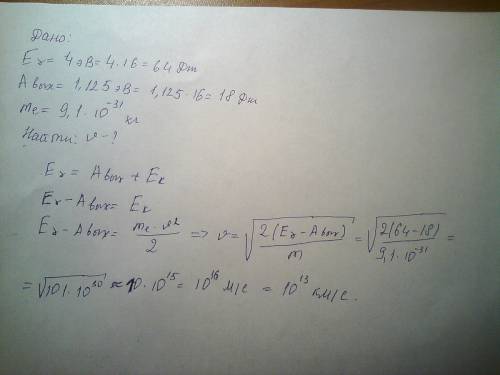 Дано:
Eγ = 4 эВ = 4·16 = 64 Дж
Aвых = 1,125 эВ = 1,125·16 = 18 Дж
me = 9,1·10⁻³¹ кг
Найти: v - ?
Eγ = Aвых + Ek
Eγ - Aвых = Ek
Eγ - Aвых = me·v²/2 => v = √(2(Eγ - Aвых)/m) = √(2(64-18)/9,1·10⁻³¹) =
= √101·10³⁰ ≈ 10·10¹⁵ = 10¹⁶ м/с = 10¹³ км/с.